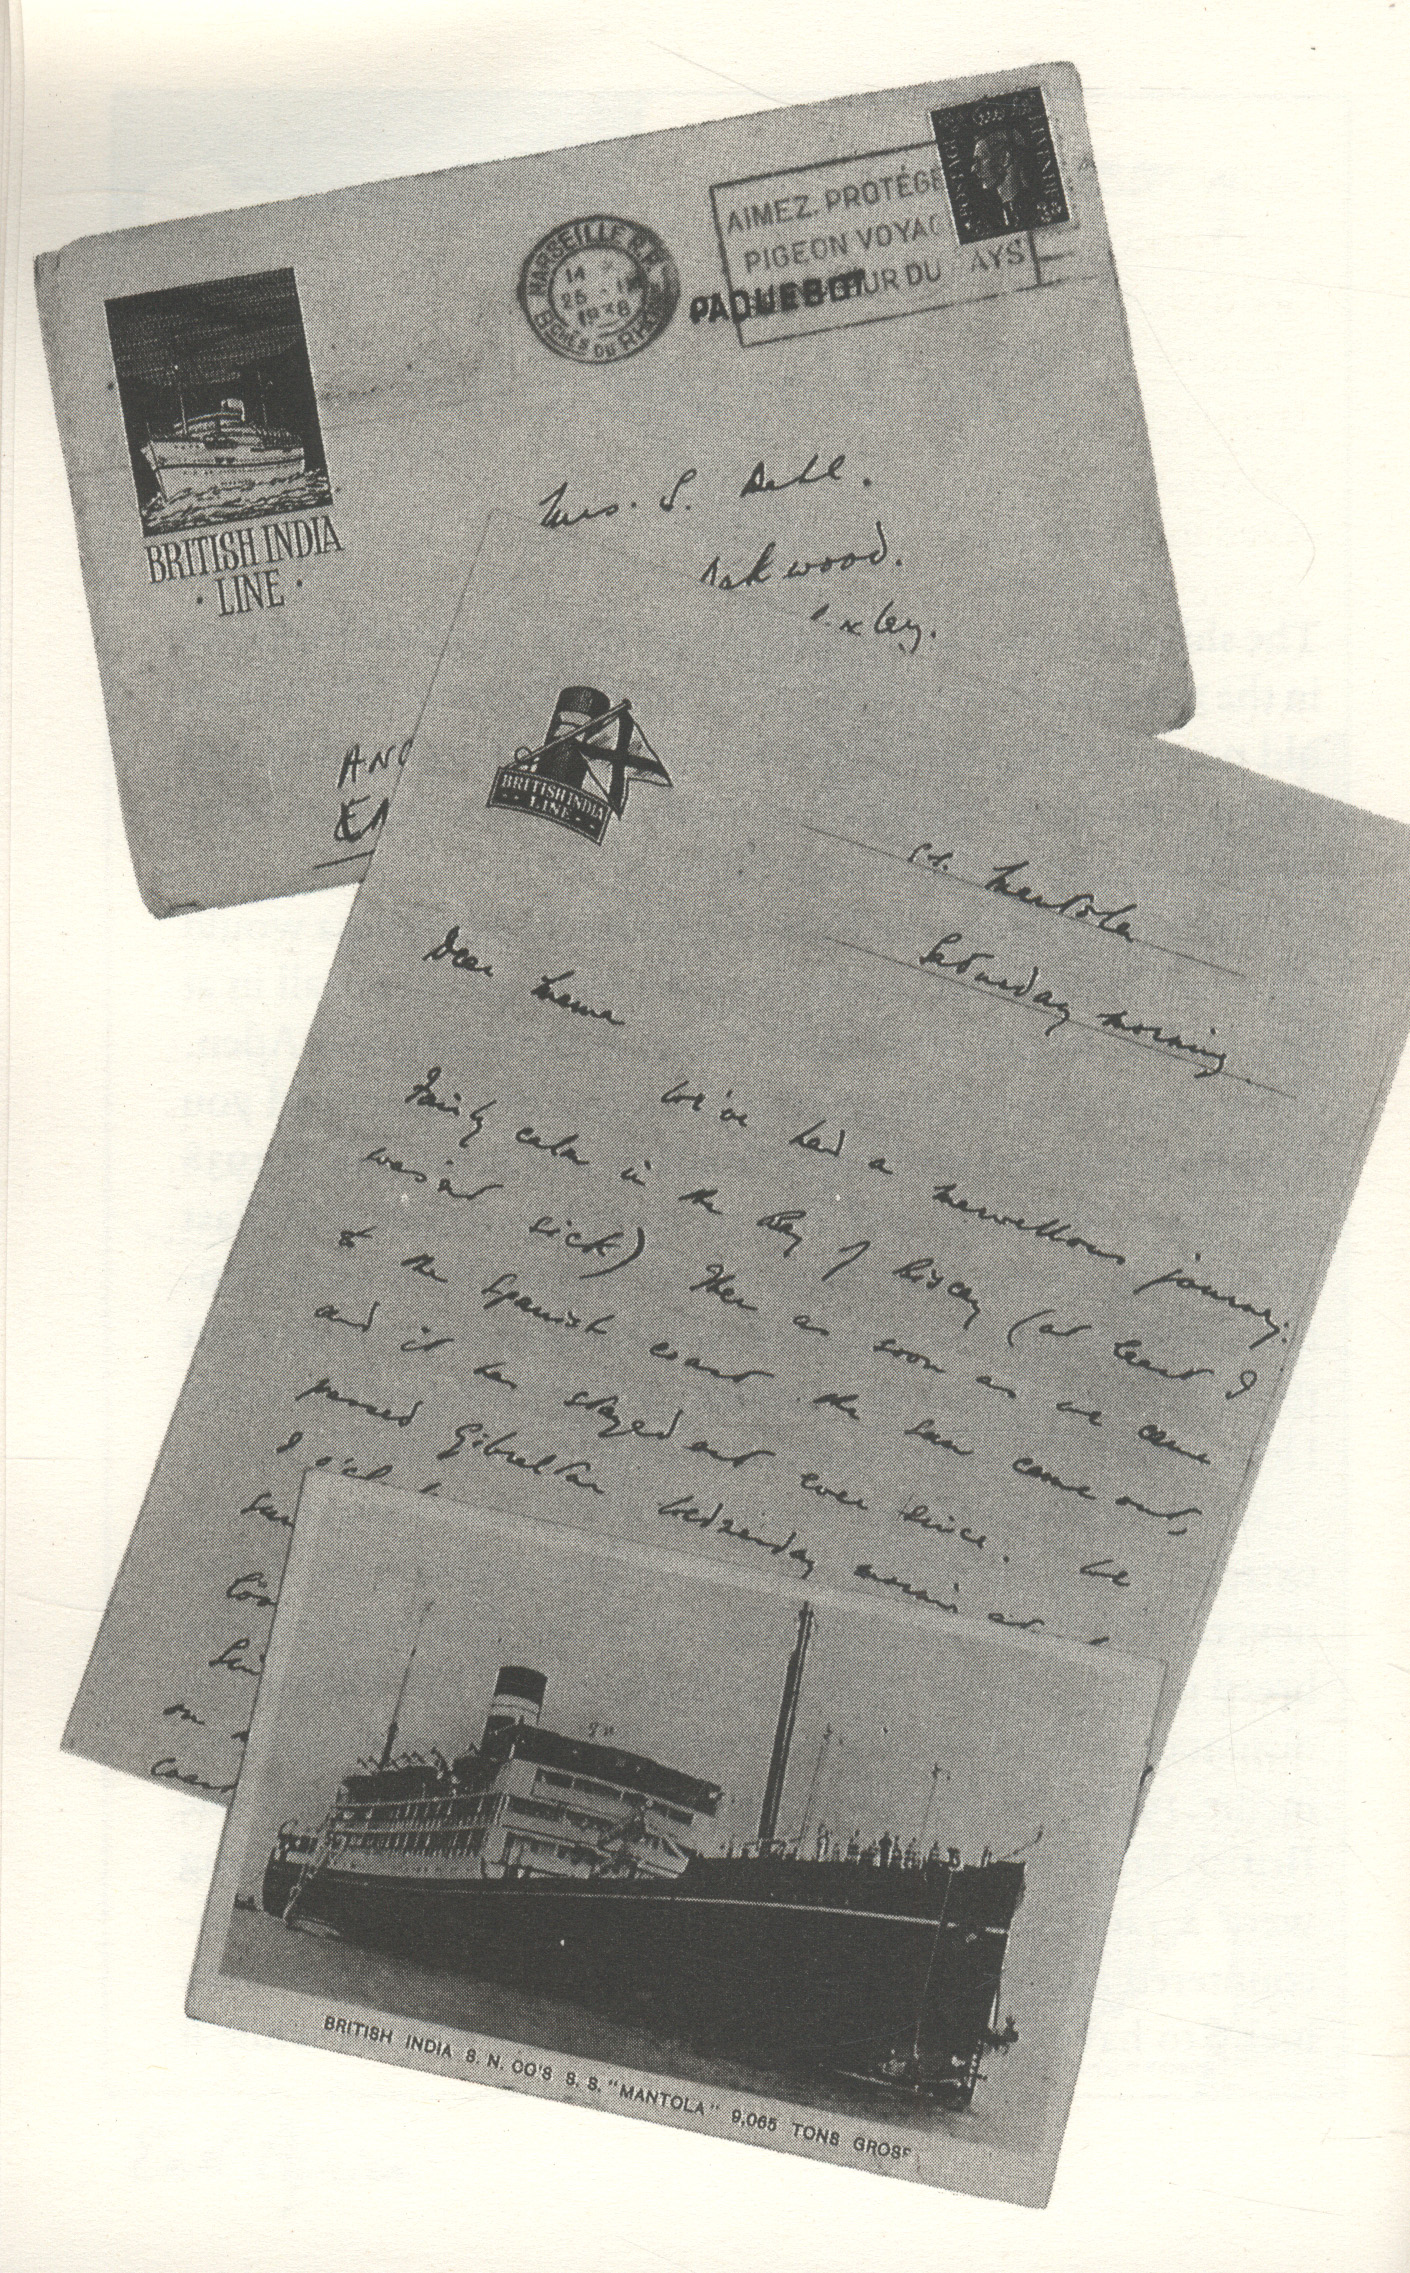 MARSEILLE R.P.
14
25 - II
1938
BCHES DU RHONE
AIMEZ. PROTÉGE
PIGEON VOYAG
UR DU AYS
PAQUEBOT
BRITISH INDIA
· LINE ·
Mrs. S. Dahl.
Oakwood.
Bexley.
ANG
BRITISH INDIA
LINE
s.s. Mantola
Saturday morning.
Dear Mama
We've had a marvellous journey:
Fairly calm in the Bay of Biscay (at least I
wasn't sick) Then as soon as we came
to the Spanish coast the sun came out,
and it has stayed out ever since. We
passed Gibraltar Wednesday morning at
I
on
BRITISH INDIA S. N. CO'S S. S. "MANTOLA" 9,065 TONS GROSS